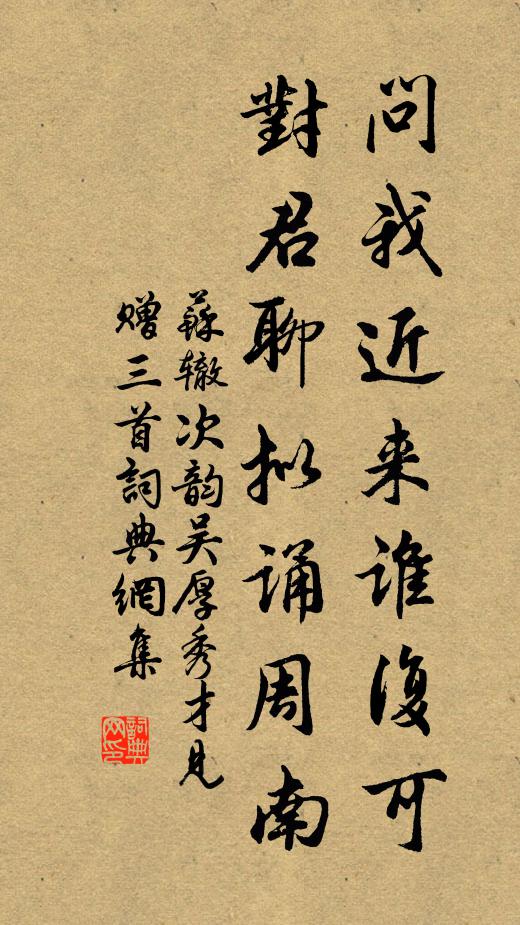 問我近来谁復可
對君聊拟诵周南
蘇辙次韵吴厚秀才見
赠三首詞典網集
詞典
网印